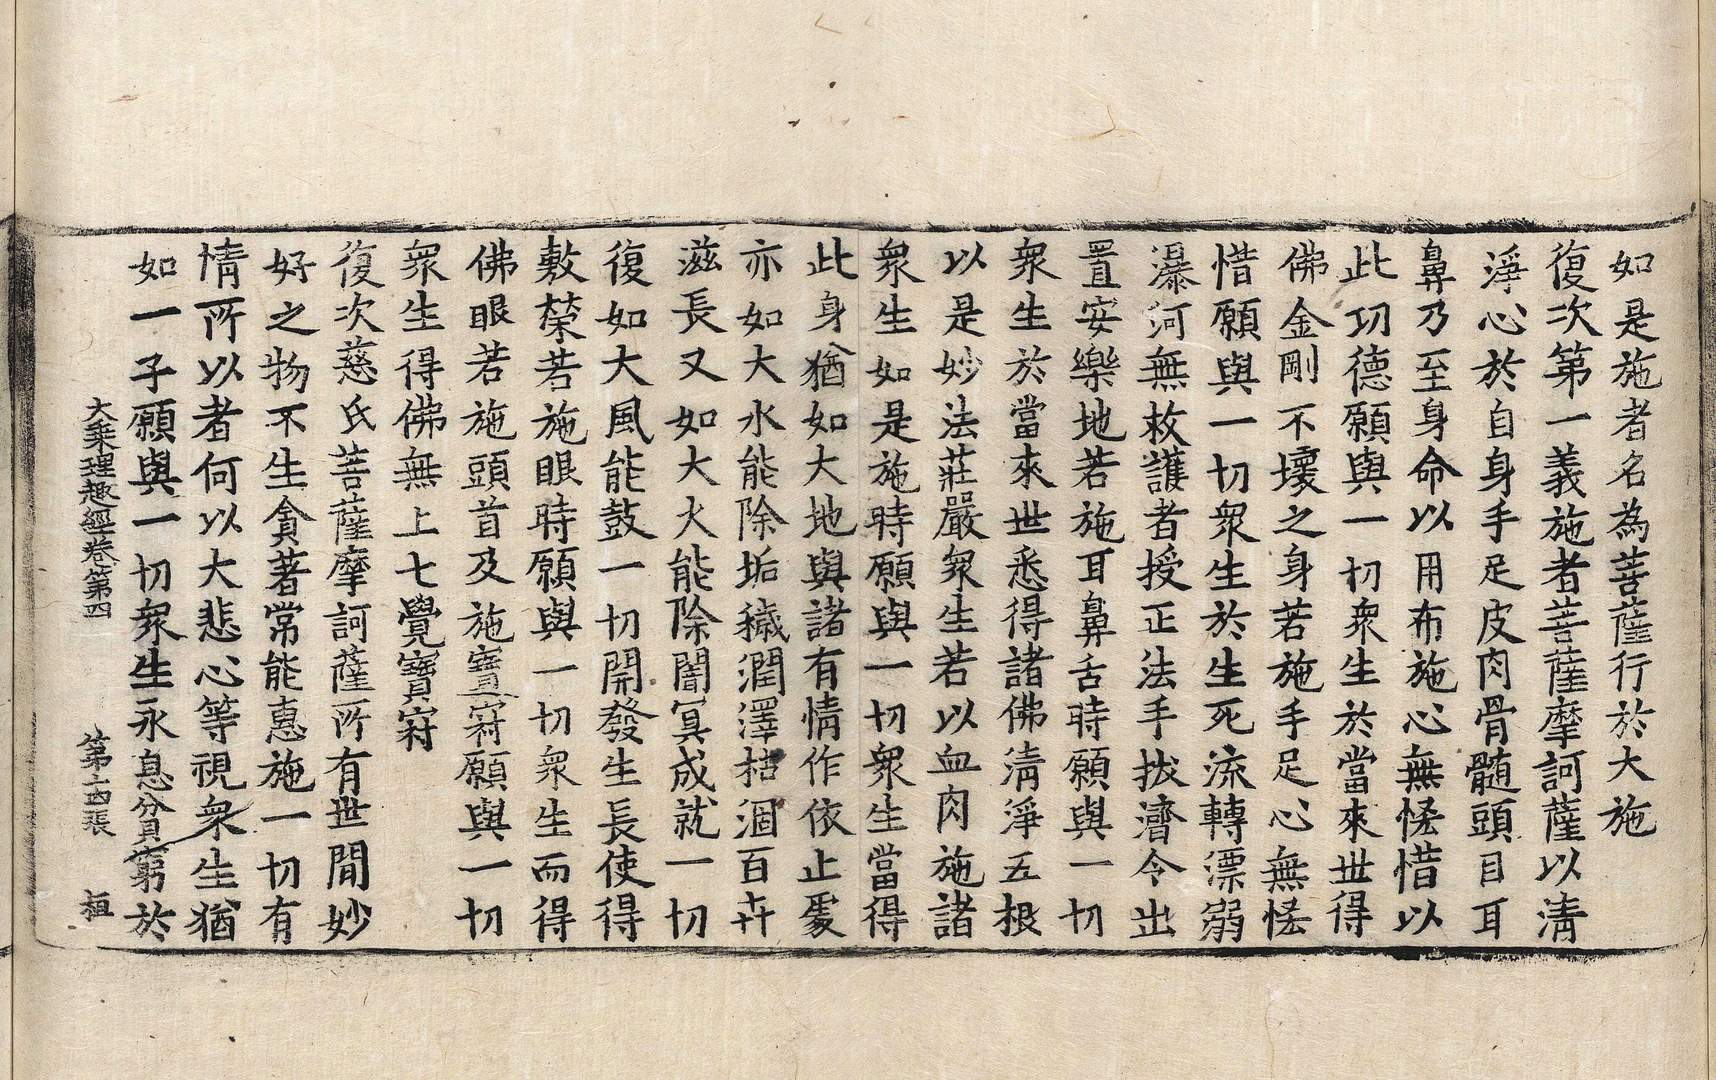 如是施者名為菩薩行於大施
復次第一義施者菩薩摩訶薩以清
淨心於自身手足皮肉骨髓頭目耳
鼻乃至身命以用布施心無悋惜以
此功德願與一切衆生於當來世得
佛金剛不壞之身若施手足心無悋
惜願與一切衆生於生死流轉漂溺
瀑河無救護者授正法手拔濟令出
置安樂地若施耳鼻舌時願與一切
衆生於當來世悉得諸佛清淨五根
以是妙法莊嚴衆生若以血肉施諸
衆生如是施時願與一切衆生當得
此身猶如大地與諸有情作依止處
亦如大水能除垢穢潤澤枯涸百卉
滋長又如大火能除闇冥成就一切
復如大風能鼓一切開發生長使得
敷榮若施眼時願與一切衆生而得
佛眼若施頭首及施寶冠願與一切
衆生得佛無上七覺寶冠
復次慈氏菩薩摩訶薩所有世間妙
好之物不生貪著常能惠施一切有
情所以者何以大悲心等視衆生猶
如一子願與一切衆生永息貧窮於
大乘理趣經卷第四 第十四張